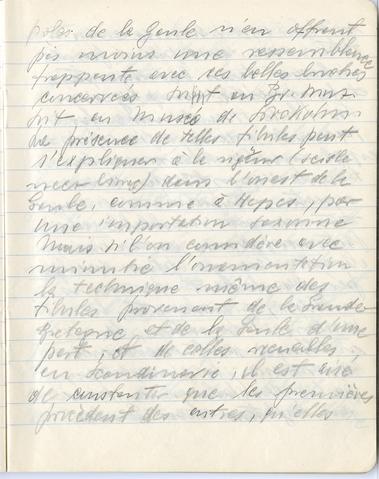 de la Gaule n'en offrent
pas moins une ressemblance
frappante avec ces belles broches
conservées soit au Br. Mus.
soit au Musée de Stockholm
La présence de telles fibules peut
s'expliquer à la rigueur (
) dans l'ouest de la
Gaule, comme à Herpes, par
une importation saxonne
Mais si l'on considère avec
minutie l'ornementation
la technique même des
fibules provenant de la Grande
Bretagne et de la Gaule d'une
part, et de celles recueillies
en Scandinavie, il est aisé
de constater que les premières
procèdent des autres, qu'elles